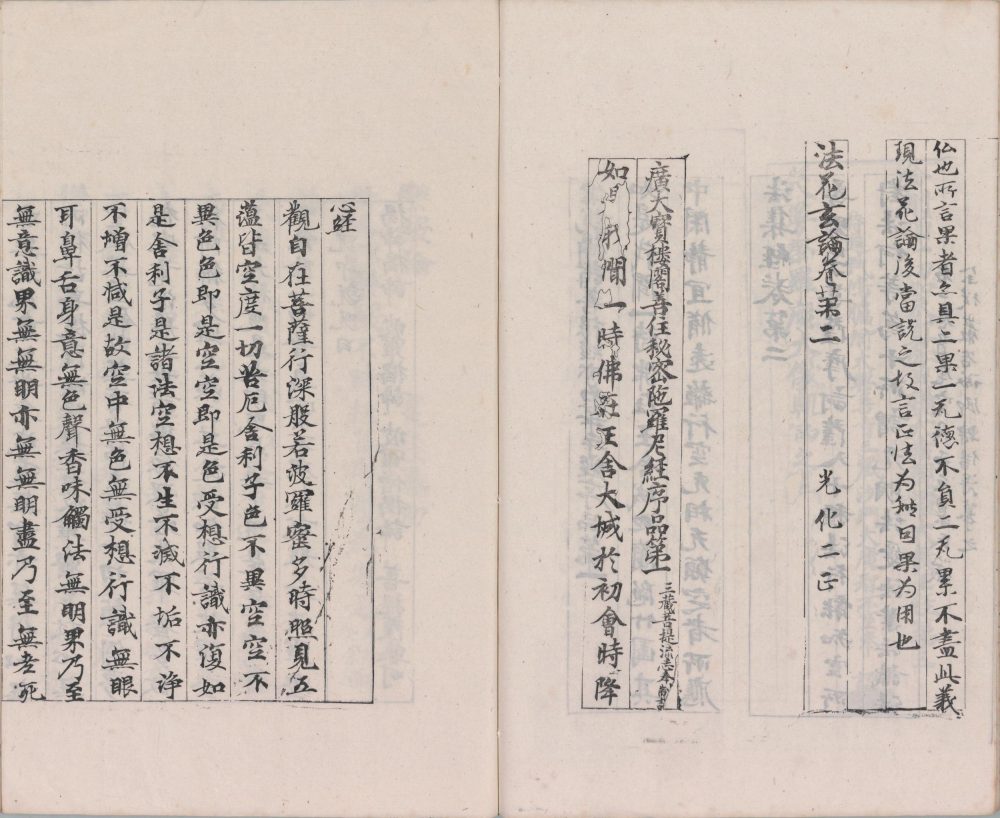 仏也所言果者亦具二果一无德不負二无累不盡此義
現法花論後當説之故言正法为㭰因果为用也
法花玄論卷第二 光化二正
廣大寳樓閣善住秘密陁羅尼経序品第一 三藏菩提流志奉
如是我聞一時佛在王舍大城於初會時降
心経
觀自在菩薩行深般若波羅蜜多時照見五
蕴皆空度一切苦厄舍利子色不異空空不
異色色即是空空即是色受想行識亦復如
是舍利子是諸法空想不生不滅不垢不浄
不増不減是故空中無色無受想行識無眼
耳鼻舌身意無色聲香味觸法無明界乃至
無意識界無無明亦無無明盡乃至無老死